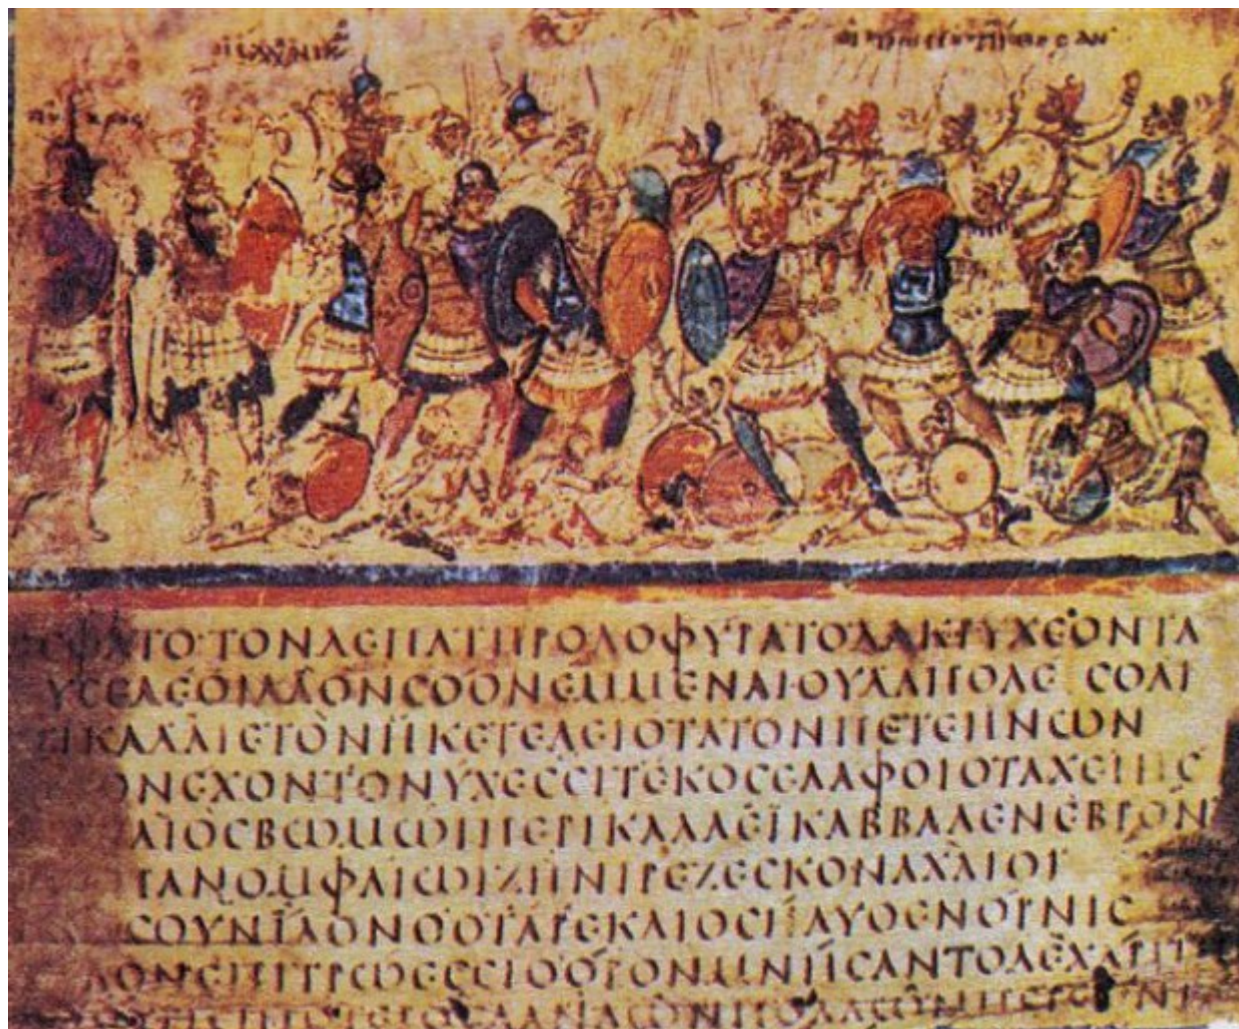 ϹΦΑΤΟ·ΤΟΝΔΕΠΑΤΗΡΟΛΟΦΥΡΑΤΟΔΑΚΡΥΧΕΟΝΤΑ
ΥϹΕΔΕΟΙΛΑΟΝϹΟΟΝΕΜΜΕΝΑΙΟΥΔΑΠΟΛΕϹΘΑΙ
ΤΙΚΑΔΑΙΕΤΟΝΗΚΕΤΕΛΕΙΟΤΑΤΟΝΠΕΤΕΗΝΩΝ
ΟΝΕΧΟΝΤΟΝΥΧΕϹϹΙΤΕΚΟϹΕΛΑΦΟΙΟΤΑΧΕΙΗϹ
ΔΙΟϹΒΩΜΩΠΕΡΙΚΑΛΛΕΪΚΑΒΒΑΛΕΝΕΒΡΟΝ
ΠΑΝΟΜΦΑΙΩΙΖΗΝΙΡΕΖΕϹΚΟΝΑΧΑΙΟΙ
ϹΟΥΝΪΔΟΝΘΟΤΑΡΕΚΔΙΟϹΗΛΥΘΕΝΟΡΝΙϹ
ΛΟΝΕΠΙΤΡΩΕϹϹΙΘΟΡΟΝΜΝΗϹΑΝΤΟΔΕΧΑΡΜ
ΠΡΟΤΕΡΟϹΔΑΝΑΩΝΠΟΛΛΩΝΠΕΡΕΟΝ